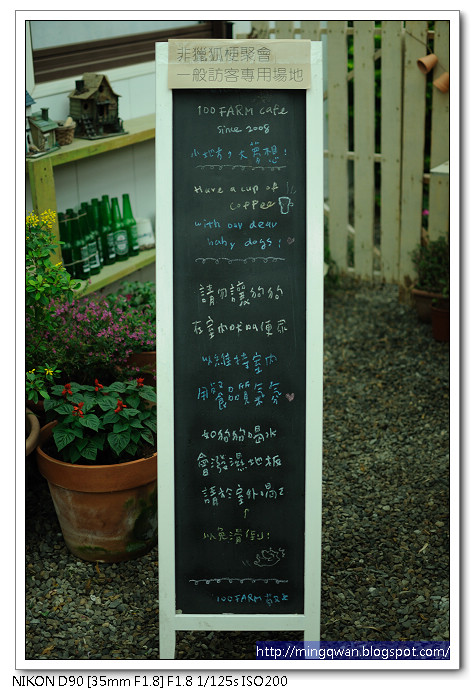 非獵狐梗聚會
一般訪客專用場地
100 FARM cafe
since 2008
小地方,大夢想!
Have a cup of
coffee
with our dear
baby dogs!
請勿讓狗狗
在室內吠叫便尿
以維持室內
用餐品質氣氛
如狗狗喝水
會潑濕地板
請於室外喝
以免滑倒!
100 FARM
http://mingqwan.blogspot.com/
NIKON D90 [35mm F1.8] F1.8 1/125s ISO200